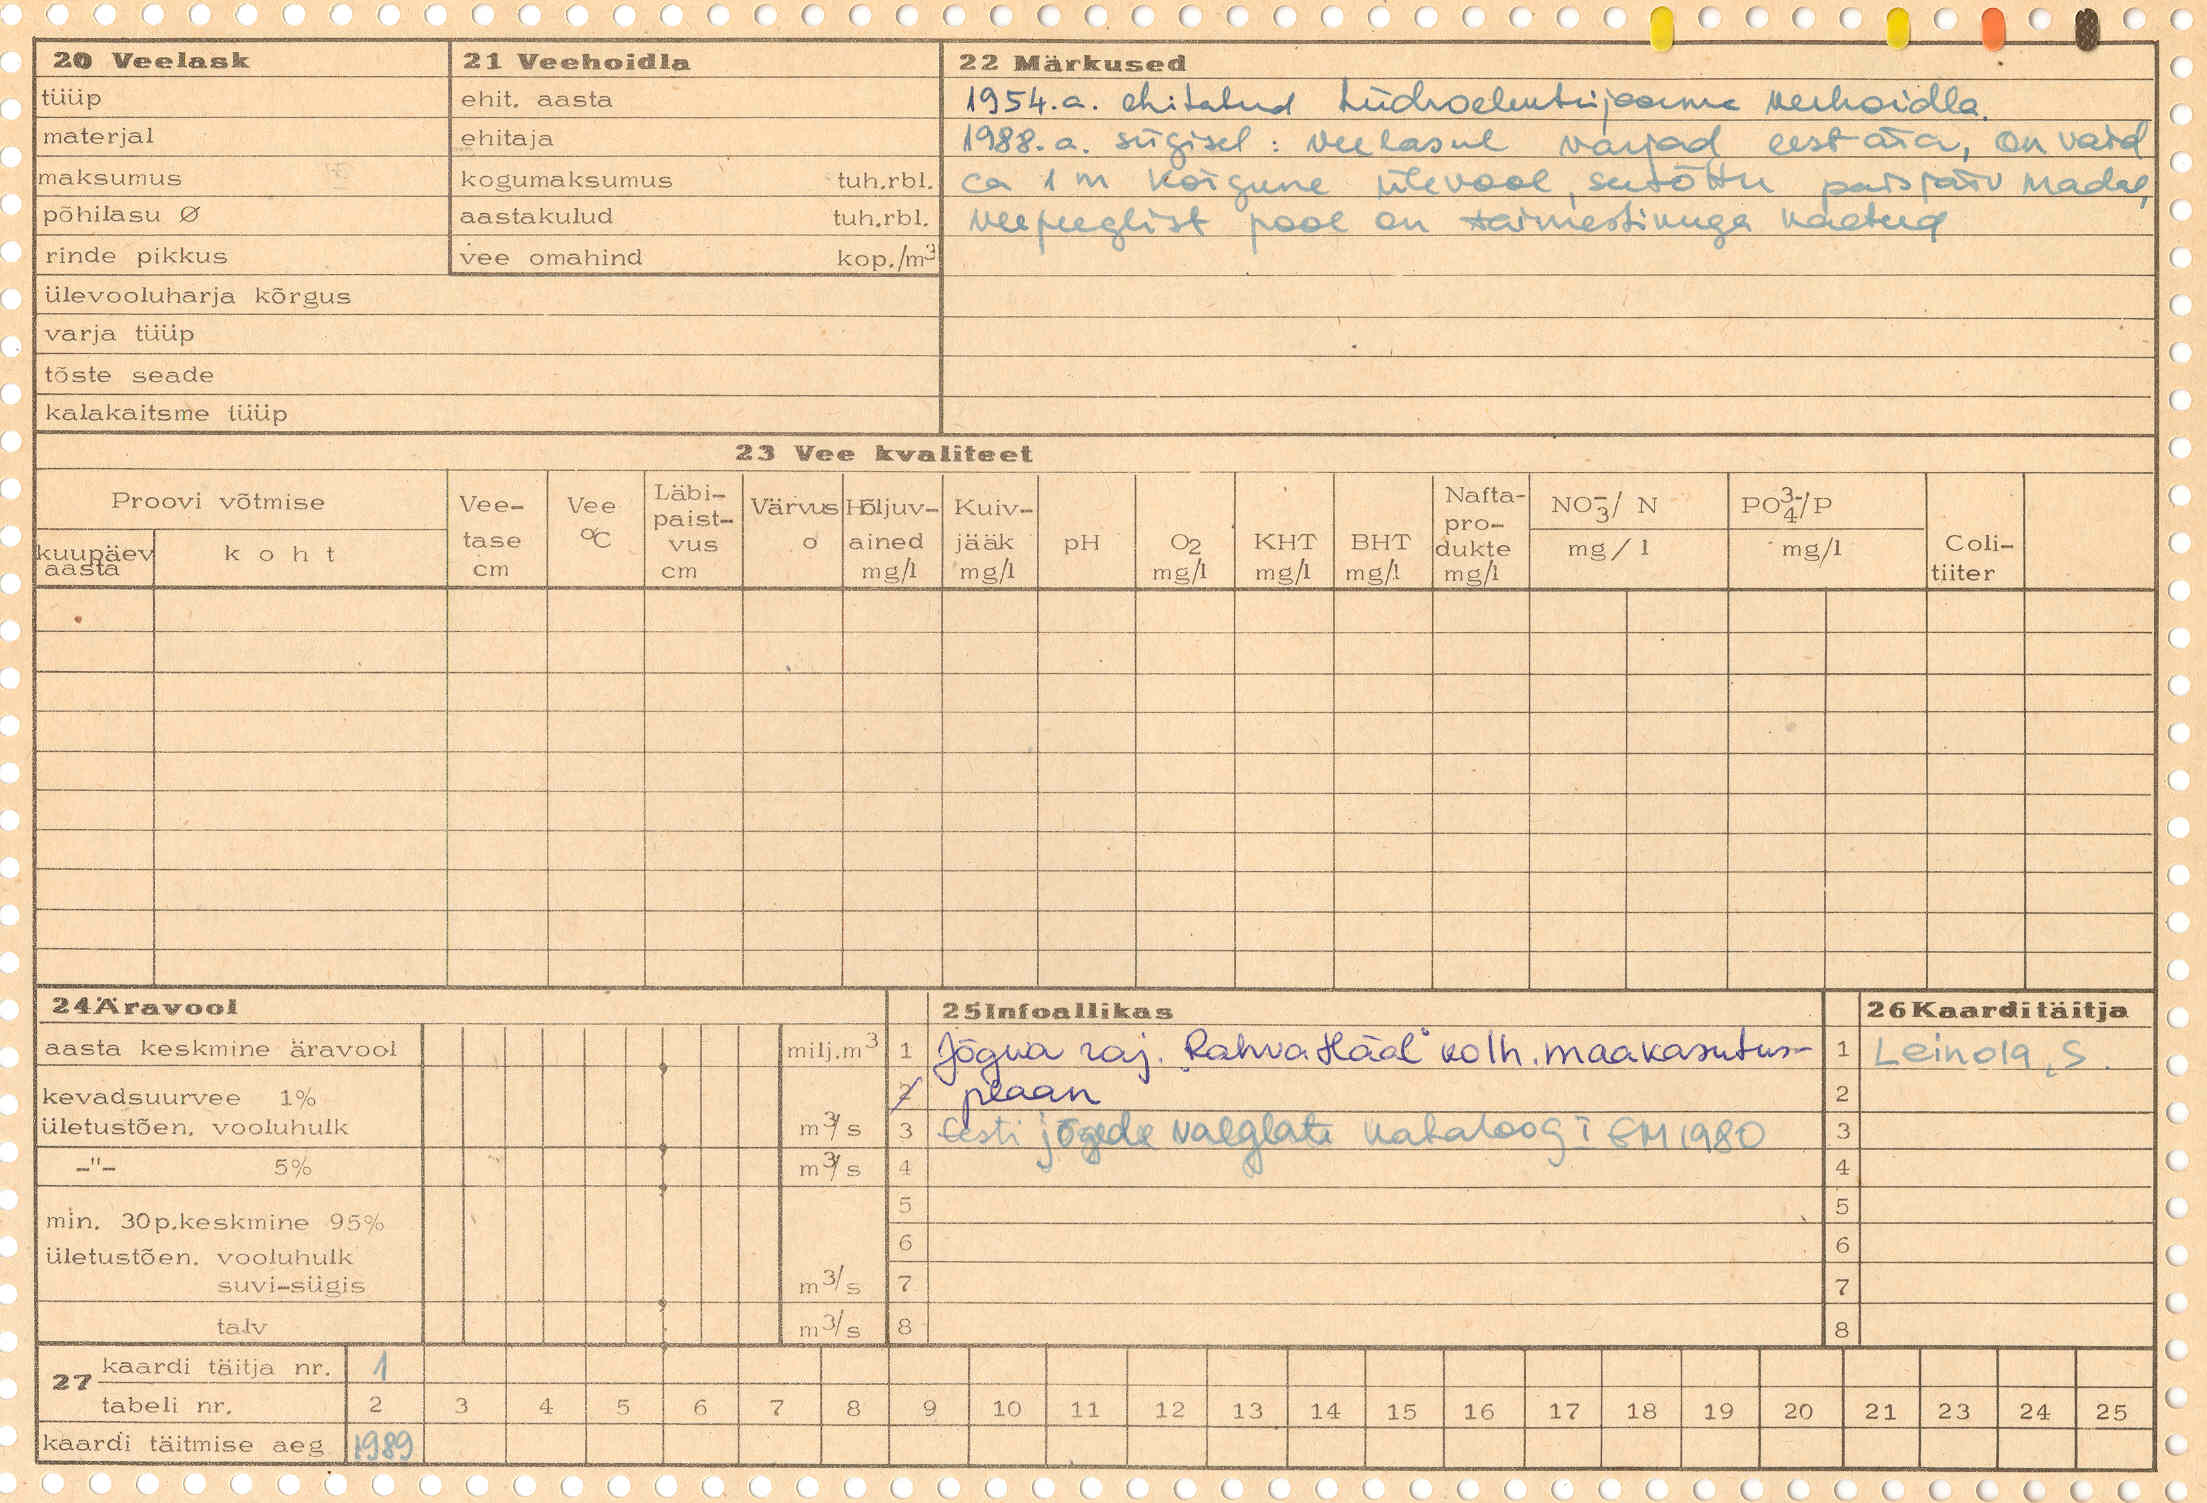 20 Veelask
tüüp
materjal
maksumus
põhilasu Ø
rinde pikkus
ülevooluharja kõrgus
varja tüüp
tõste seade
kalakaitsme tüüp
21 Veehoidla
ehit. aasta
ehitaja
kogumaksumus tuh.rbl.
aastakulud tuh.rbl.
vee omahind kop./m³
22 Märkused
1954.a. ehitatud hüdroelektrijaama veehoidla.
1988.a. sügisel: veelasul varjad eest ära, on vaid
ca 1 m kõigune ülevool, seetõttu paisjärv madal,
veepeeglist pool on taimestikuga kaetud
23 Vee kvaliteet
Proovi võtmise
kuupäev aasta
koht
Vee-tase cm
Vee °C
Läbi-paist-vus cm
Värvus o
Hõljuv-ained mg/l
Kuiv-jääk mg/l
pH
O₂ mg/l
KHT mg/l
BHT mg/l
Nafta-pro-dukte mg/l
NO₃⁻/ N mg/l
PO₄³⁻/P mg/l
Coli-tiiter
24 Äravool
aasta keskmine äravool milj.m³
kevadsuurvee 1%
ületustõen. vooluhulk m³/s
-"- 5% m³/s
min. 30p.keskmine 95%
ületustõen. vooluhulk
suvi-sügis m³/s
talv m³/s
25 Infoallikas
1 Jõgeva raj. "Rahva Hääl" kolh. maakasutus-
2 plaan
3 Eesti jõgede valglate kataloog I EM 1980
4
5
6
7
8
26 Kaarditäitja
1 Leinola, S.
2
3
4
5
6
7
8
27 kaardi täitja nr. 1
tabeli nr. 2 3 4 5 6 7 8 9 10 11 12 13 14 15 16 17 18 19 20 21 23 24 25
kaardi täitmise aeg 1989